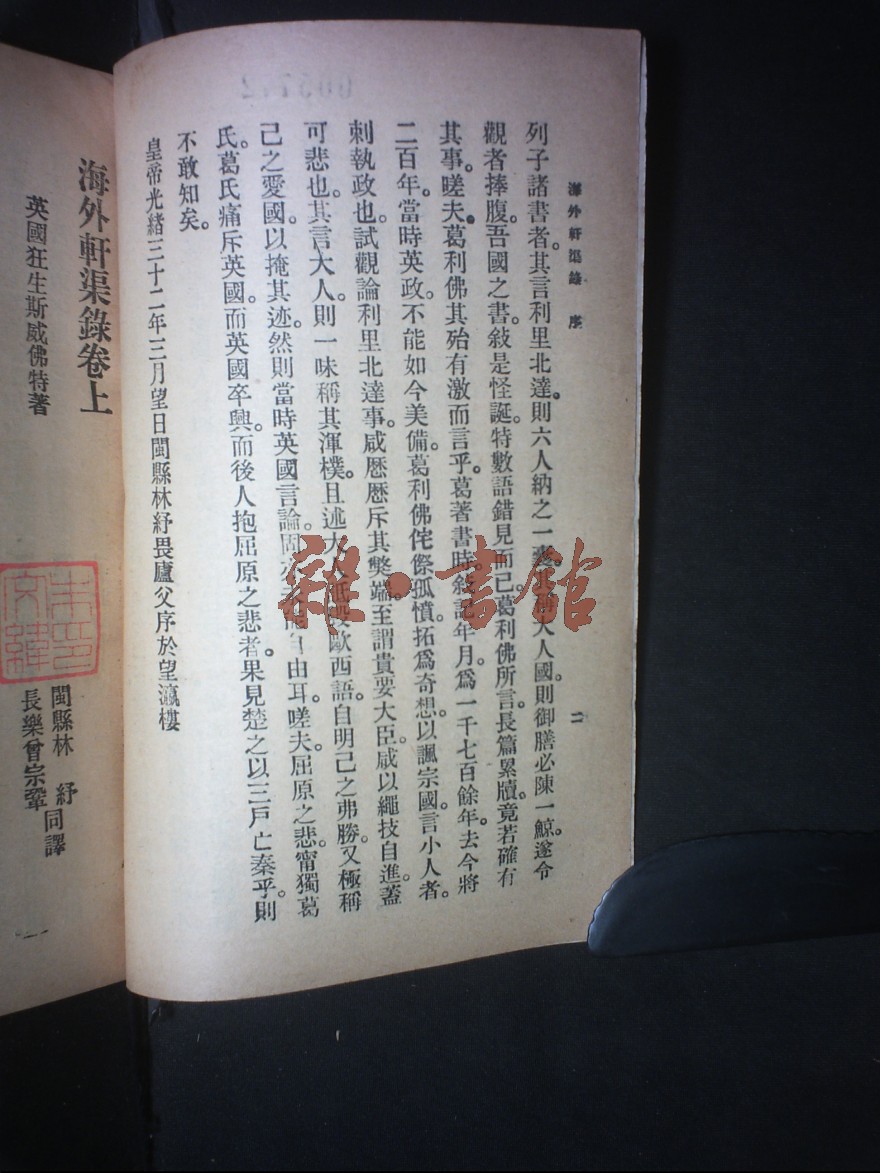 海外軒渠錄 序
二
列子諸書者。其言利里北達。則六人納之一囊。其稱大人國。則御膳必陳一鯨。遂令
觀者捧腹。吾國之書。敍是怪誕。特數語錯見而已。葛利佛所言。長篇累牘。竟若確有
其事。嗟夫。葛利佛其殆有激而言乎。葛著書時。敍記年月。爲一千七百餘年。去今將
二百年。當時英政。不能如今美備。葛利佛侘傺孤憤。拓爲奇想。以諷宗國。言小人者。
刺執政也。試觀論利里北達事。咸歷歷斥其弊端。至謂貴要大臣。咸以繩技自進。蓋
可悲也。其言大人。則一味稱其渾樸。且述大人詆毀歐西語。自明己之弗勝。又極稱
己之愛國。以掩其迹。然則當時英國言論。固亦未能自由耳。嗟夫。屈原之悲。甯獨葛
氏。葛氏痛斥英國。而英國卒興。而後人抱屈原之悲者。果見楚之以三戶亡秦乎。則
不敢知矣。
皇帝光緒三十二年三月望日閩縣林紓畏廬父序於望瀛樓
海外軒渠錄卷上
英國狂生斯威佛特著
閩縣林 紓
長樂曾宗鞏
同譯
一
雜·書館